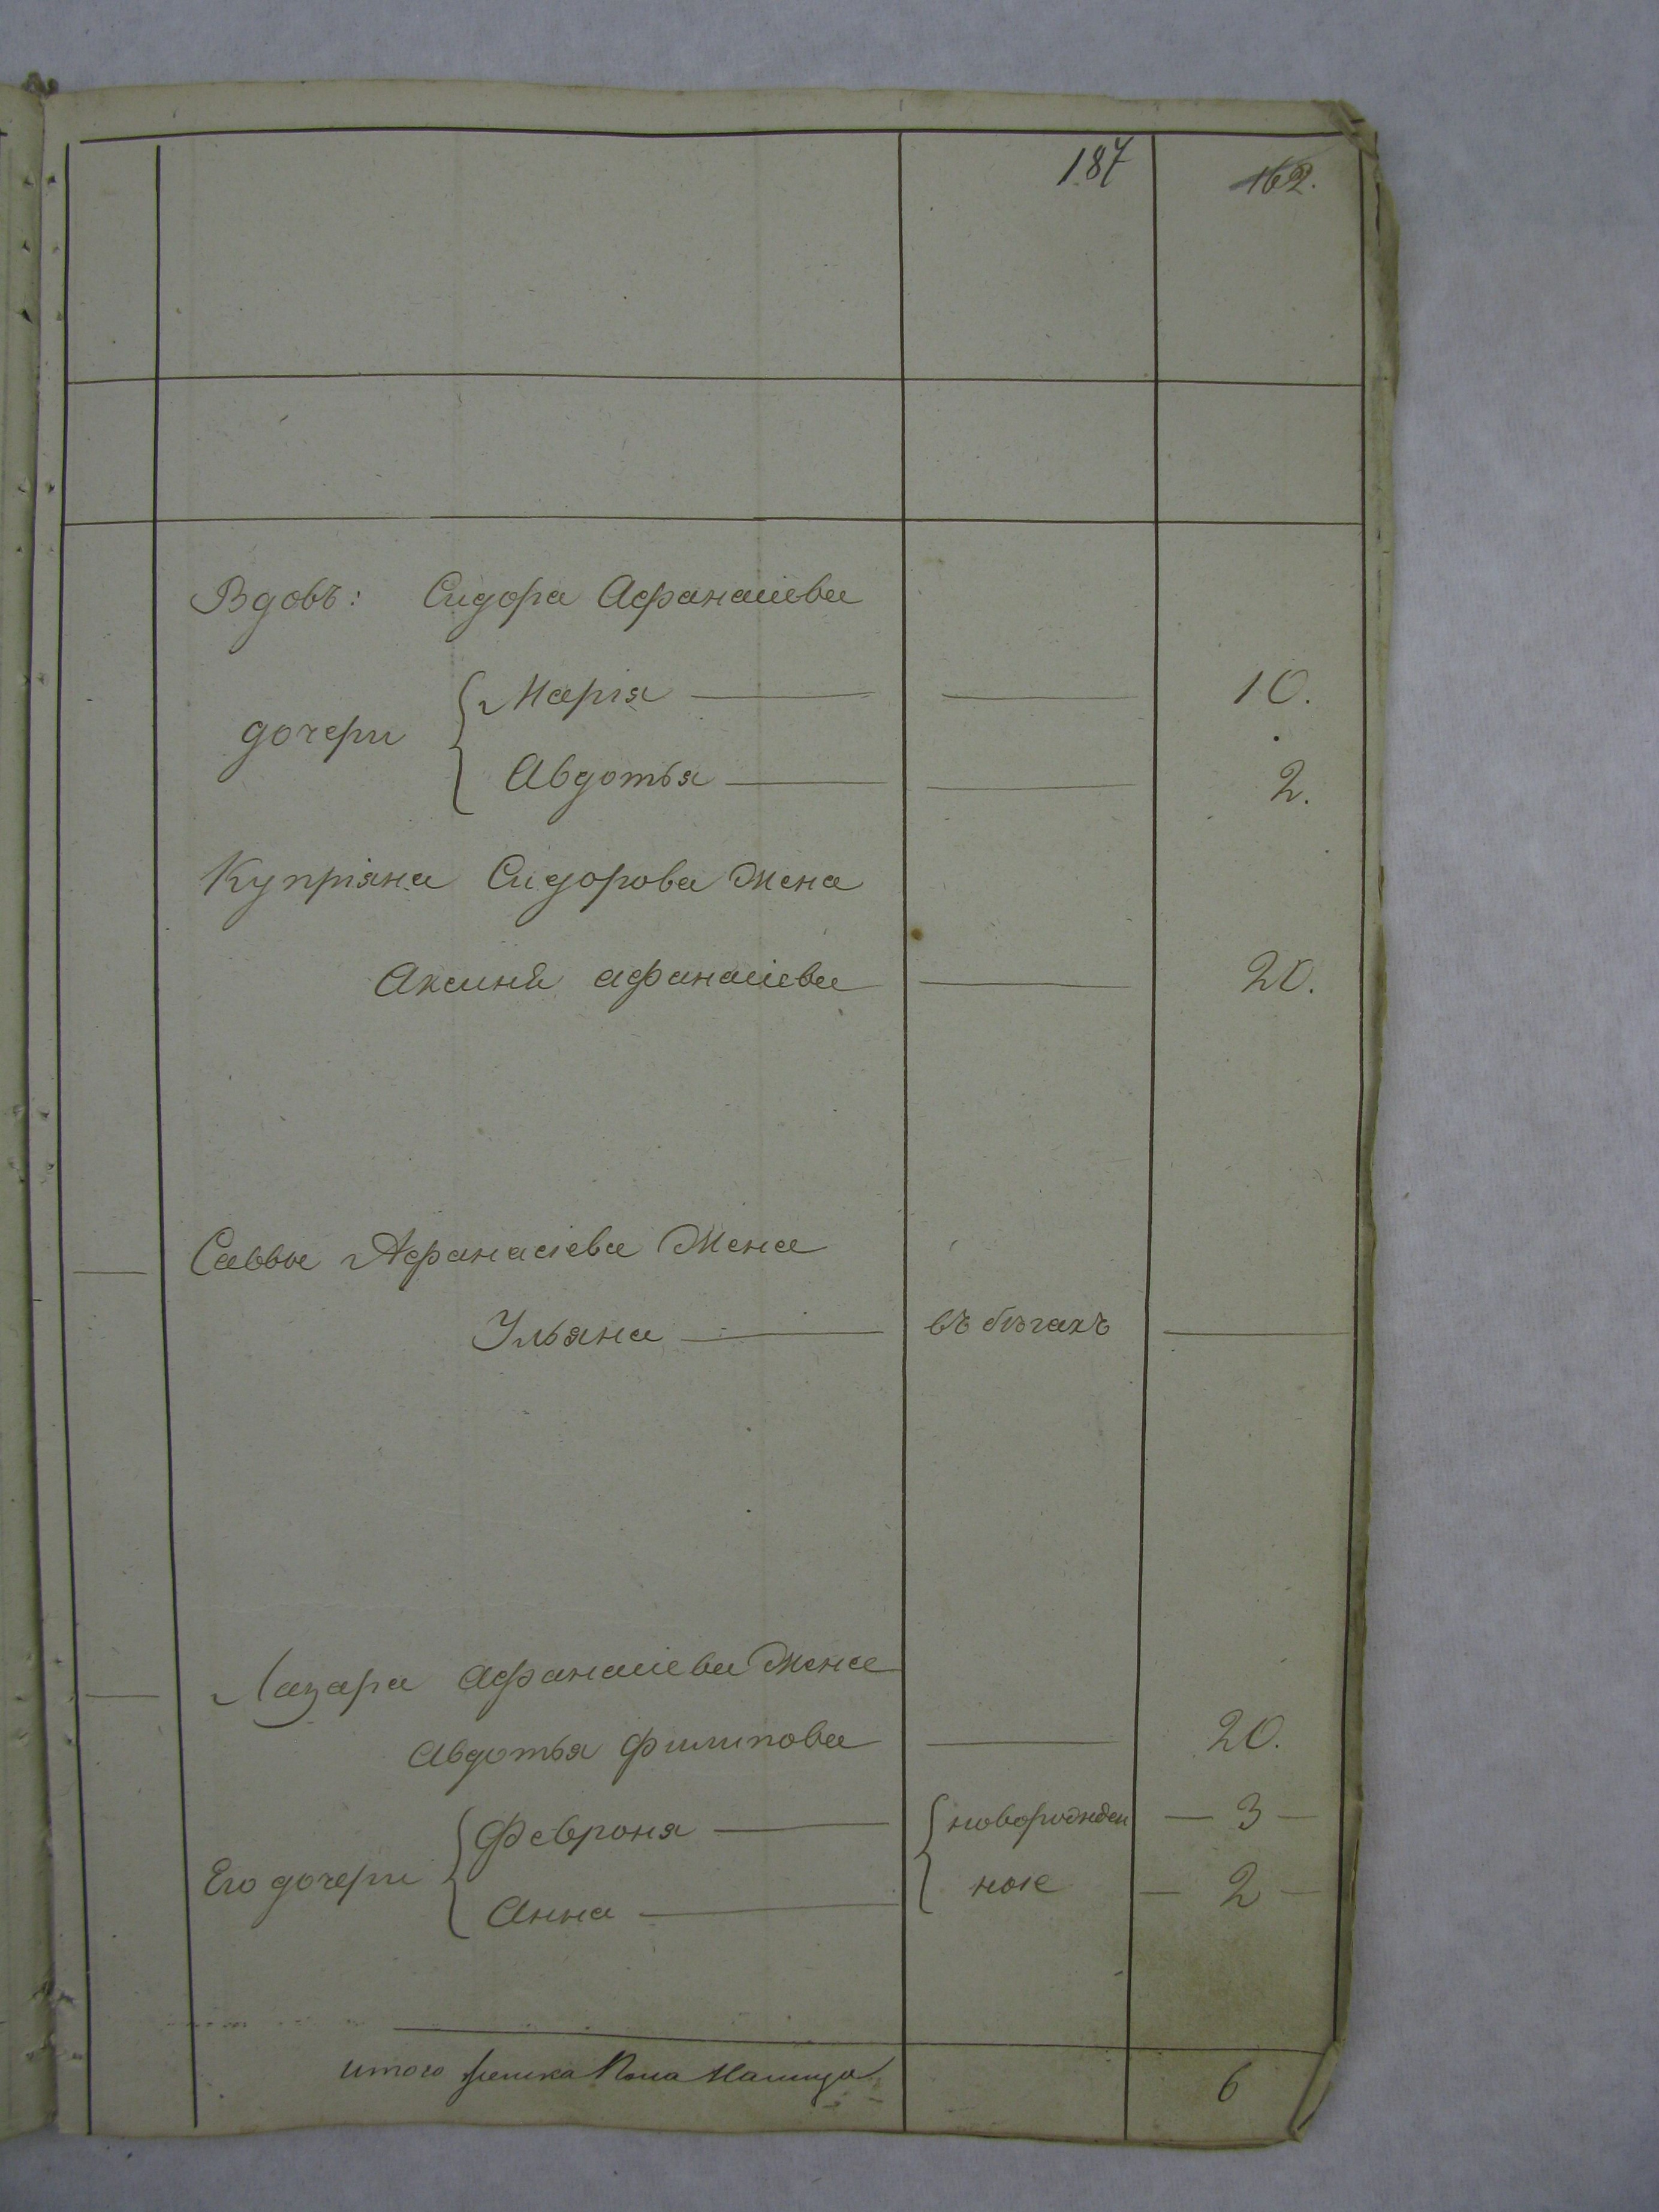 187 162.
Вдовъ: Сидора Афанасіева
дочери
Марія 10.
Авдотья 2.
Купріяна Сидорова жена
Аксинья афанасіева 20.
Саввы Афанасіева жена
Ульяна въ бѣгахъ
Лазара Афанасіева жена
Авдотья Филипова 20.
Его дочери
Февроня новорожден 3
Анна ные 2
итого женска Пола Налицо 6